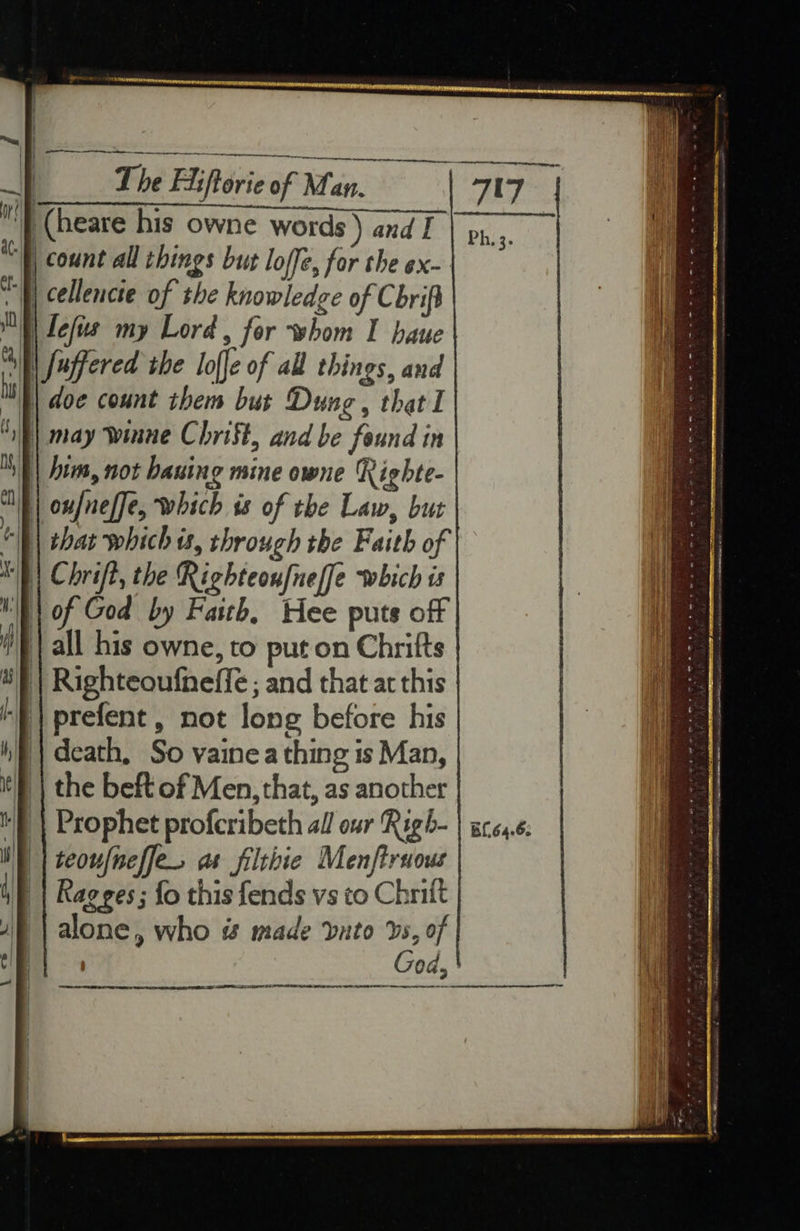 The Hiſtorie of Man. 717
(heare his owne words) and I
Ph. 3.
count all things but loſſe, for the ex-
cellencie of the knowledge of Chriſt
Ieſus my Lord, for whom I haue
ſuffered the loſſe of all things, and
doe count them but Dung, that I
may winne Chriſt, and be found in
him, not hauing mine owne Righte-
ouſneſſe, which is of the Law, but
that which is, through the Faith of
Chriſt, the Righteouſneſſe which is
of God by Faith. Hee puts off
all his owne, to put on Chriſts
Righteouſneſſe; and that at this
preſent, not long before his
death. So vaine a thing is Man,
the beſt of Men, that, as another
Prophet proſcribeth all our Righ-
Eſ. 64.6.
teouſneſſe as filthie Menſtruous
Ragges; ſo this ſends vs to Chriſt
alone, who is made vnto vs, of
God,